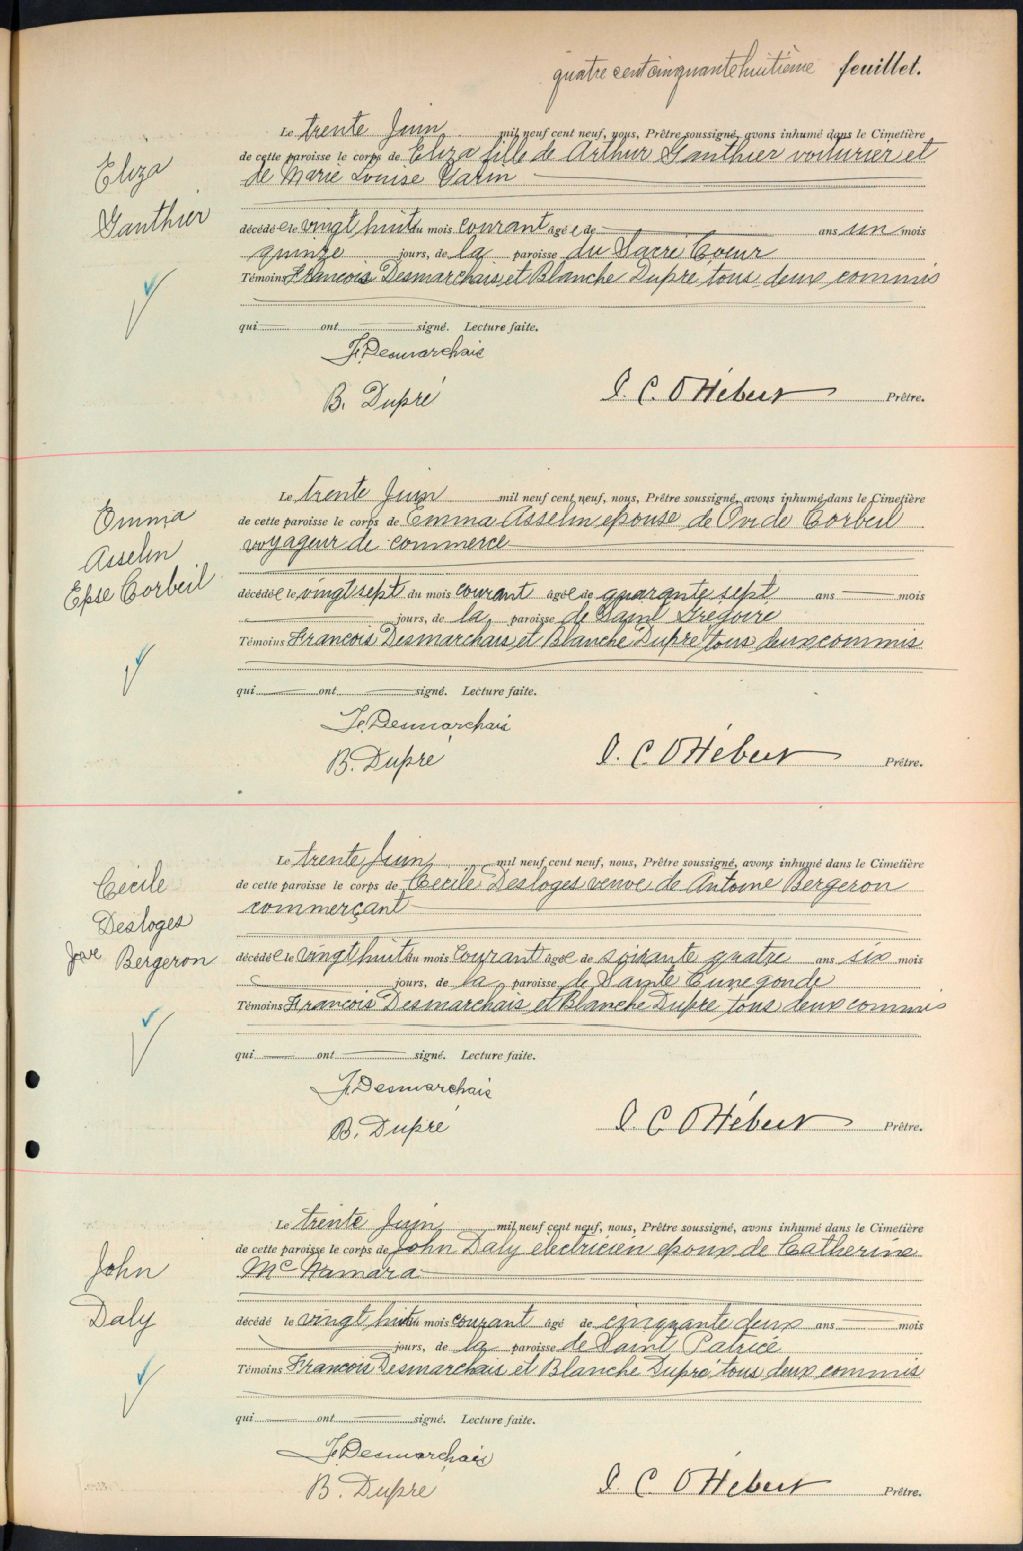 quatre cent cinquante huitième feuillet.
Eliza
Gauthier
Le trente Juin mil neuf cent neuf, nous, Prêtre soussigné, avons inhumé dans le Cimetière
de cette paroisse le corps de Eliza fille de Arthur Gauthier voiturier et
de Marie Louise Varin
décédée le vingt huit du mois courant âgée de ans un mois
quinze jours, de la paroisse du Sacré Coeur
Témoins Francois Desmarchais et Blanche Dupré tous deux commis
qui ont signé. Lecture faite.
F. Desmarchais
B. Dupré
Hébert Prêtre.
Emma
Asselin
Epse Corbeil
Le trente Juin mil neuf cent neuf, nous, Prêtre soussigné, avons inhumé dans le Cimetière
de cette paroisse le corps de Emma Asselin epouse de Ovide Corbeil
voyageur de commerce
décédée le vingt sept du mois courant âgée de quarante sept ans mois
jours, de la paroisse de Saint Grégoire
Témoins Francois Desmarchais et Blanche Dupré tous deux commis
qui ont signé. Lecture faite.
F. Desmarchais
B. Dupré
Hébert Prêtre.
Cécile
Desloges
Bergeron
Le trente Juin mil neuf cent neuf, nous, Prêtre soussigné, avons inhumé dans le Cimetière
de cette paroisse le corps de Cecile Desloges veuve de Antoine Bergeron
commerçant
décédée le vingt huit du mois courant âgée de soixante quatre ans six mois
jours, de la paroisse de Sainte Cunegonde
Témoins Francois Desmarchais et Blanche Dupré tous deux commis
qui ont signé. Lecture faite.
F. Desmarchais
B. Dupré
Hébert Prêtre.
John
Daly
Le trente Juin mil neuf cent neuf, nous, Prêtre soussigné, avons inhumé dans le Cimetière
de cette paroisse le corps de John Daly electricien epoux de Catherine
Mc Namara
décédé le vingt huit du mois courant âgé de cinquante deux ans mois
jours, de la paroisse de Saint Patrice
Témoins Francois Desmarchais et Blanche Dupré tous deux commis
qui ont signé. Lecture faite.
F. Desmarchais
B. Dupré
Hébert Prêtre.